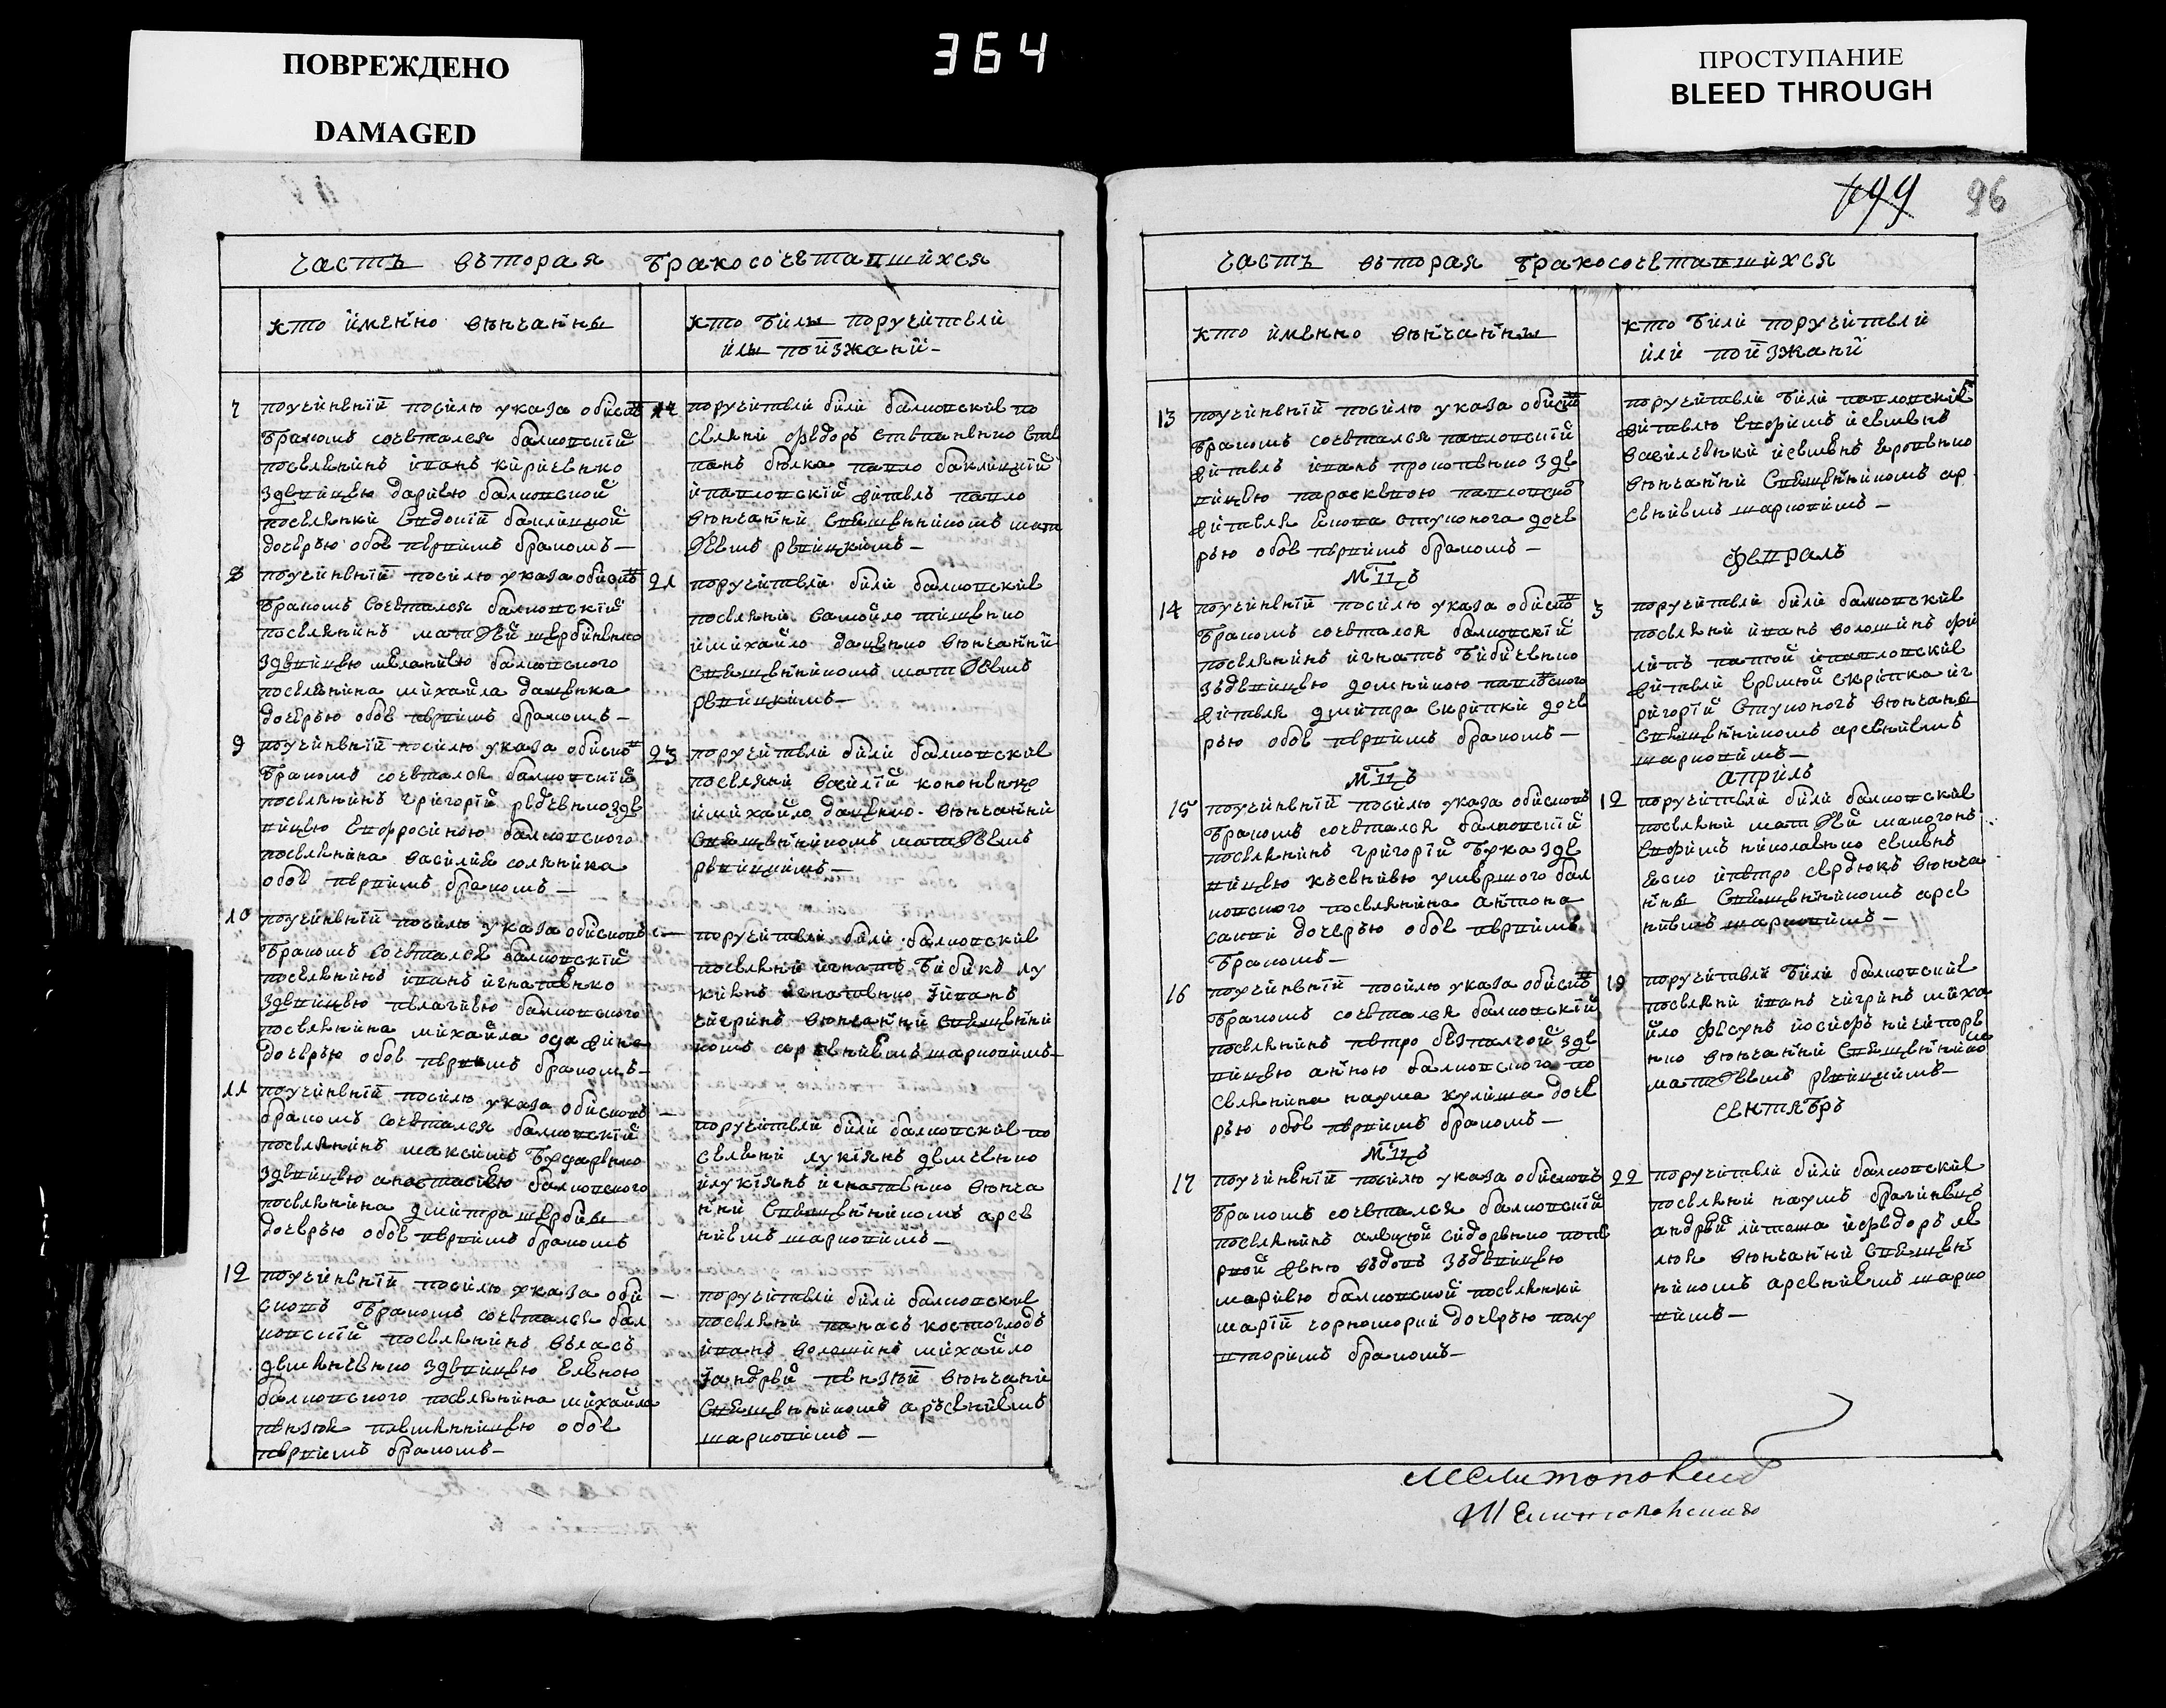 ПОВРЕЖДЕНО
DAMAGED
364
ПРОСТУПАНИЕ
BLEED THROUGH
199 96
часть вторая бракосочетавшихся
кто именно венчанны
кто были поручители
или поизжани
7 поучинении посилю указа обиск
браком сочетался балковский
поселянин иван киричевко
здевицею дариею балковской
поселянки евдокии баклицкой
дочерью обое первим браком
17 поручители били балковские по
селяни федор степаненко сте
пан белка павло баклицкий
и павловский житель павло
венчанни священником мат
феем ревицким
8 поучинении посилю указа обиск
браком сочетался балковский
поселянин матфей щербиненко
здевицею меланиею балковского
поселянина михаила даценка
дочерью обое первим браком
21 поручители били балковские
поселяни самойло тищенко
и михайло даценко венчанни
священником матфеем
ревицким
9 поучинении посилю указа обиск
браком сочетался балковский
поселянин григорий редченко зде
вицею евфросиною балковского
поселянина василия соляника
обое первим браком
23 поручители били балковские
поселяни василий кононенко
и михайло даценко венчанни
священником матфеем
ревицким
10 поучинении посилю указа обисков
браком сочетался балковский
поселянин иван игнатенко
здевицею пелагиею балковского
поселянина михаила
дочерью обое первим браком
поручители били балковские
поселяни игнат бибик лу
киян игнатенко и иван
чигрин венчанни священни
ком арсением марковим
11 поучинении посилю указа обисков
браком сочетался балковский
поселянин максим бударенко
здевицею анастасиею балковского
поселянина дмитра щербини
дочерью обое первим браком
поручители били балковские по
селяни лукиян демченко
и лукиян игнатенко венча
нни священником арсе
нием марковим
12 поучинении посилю указа оби
сков браком сочетался бал
ковский поселянин влас
демянченко здевицею еленою
балковского поселянина михайла
пензюя племянницею обое
первим браком
поручители били балковские
поселяни панас костоглод
иван волошин михайло
и андрей пензюй венчани
священником арсением
марковим
часть вторая бракосочетавшихся
кто именно венчанны
кто били поручители
или поизжани
13 поучинении посилю указа обиск
браком сочетался павловский
житель иван прокопенко зде
вицею парасквою павловско
жителя якова ступоного доче
рью обое первим браком
поручители били павловские
жители ефим и семен
василенки и семен еропенко
венчанни священником ар
сением марковим
мць
февраль
14 поучинении посилю указа обиск
браком сочетался балковский
поселянин игнат бибиченко
здевицею домникою павловского
жителя дмитра скрипки доче
рью обое первим браком
3 поручители били балковские
поселяни иван волошин фи
лип патюй и павловские
жители еремей скрипка и г
ригорий ступоног венчаны
священником арсением
марковим
мць
априль
15 поучинении посилю указа обисков
браком сочетался балковский
поселянин григорий бука зде
вицею ксениею умершого бал
ковского поселянина антона
савки дочерью обое первим
браком
12 поручители били балковские
поселяни матфей макогон
ефим николаенко семен
есно и петро сердюк венча
нны священником арсе
нием марковим
16 поучинении посилю указа обиск
браком сочетался балковский
поселянин петро безпалчой зде
вицею анною балковского по
селянина наума кулиша доче
рью обое первим браком
19 поручители били балковские
поселяни иван чигрин миха
йло фесун иосиф ничипоре
нко венчанни священником
матфеем ревицким
мць
сентябрь
17 поучинении посилю указа обисков
браком сочетался балковский
поселянин алексей сидоренко попе
рвой жене вдов здевицею
мариею балковской поселянки
марии чорноморки дочерью полу
вторим браком
22 поручители били балковские
поселяни наум брагинец
андрей литома и федор ле
люк венчанни священ
ником арсением марко
вим